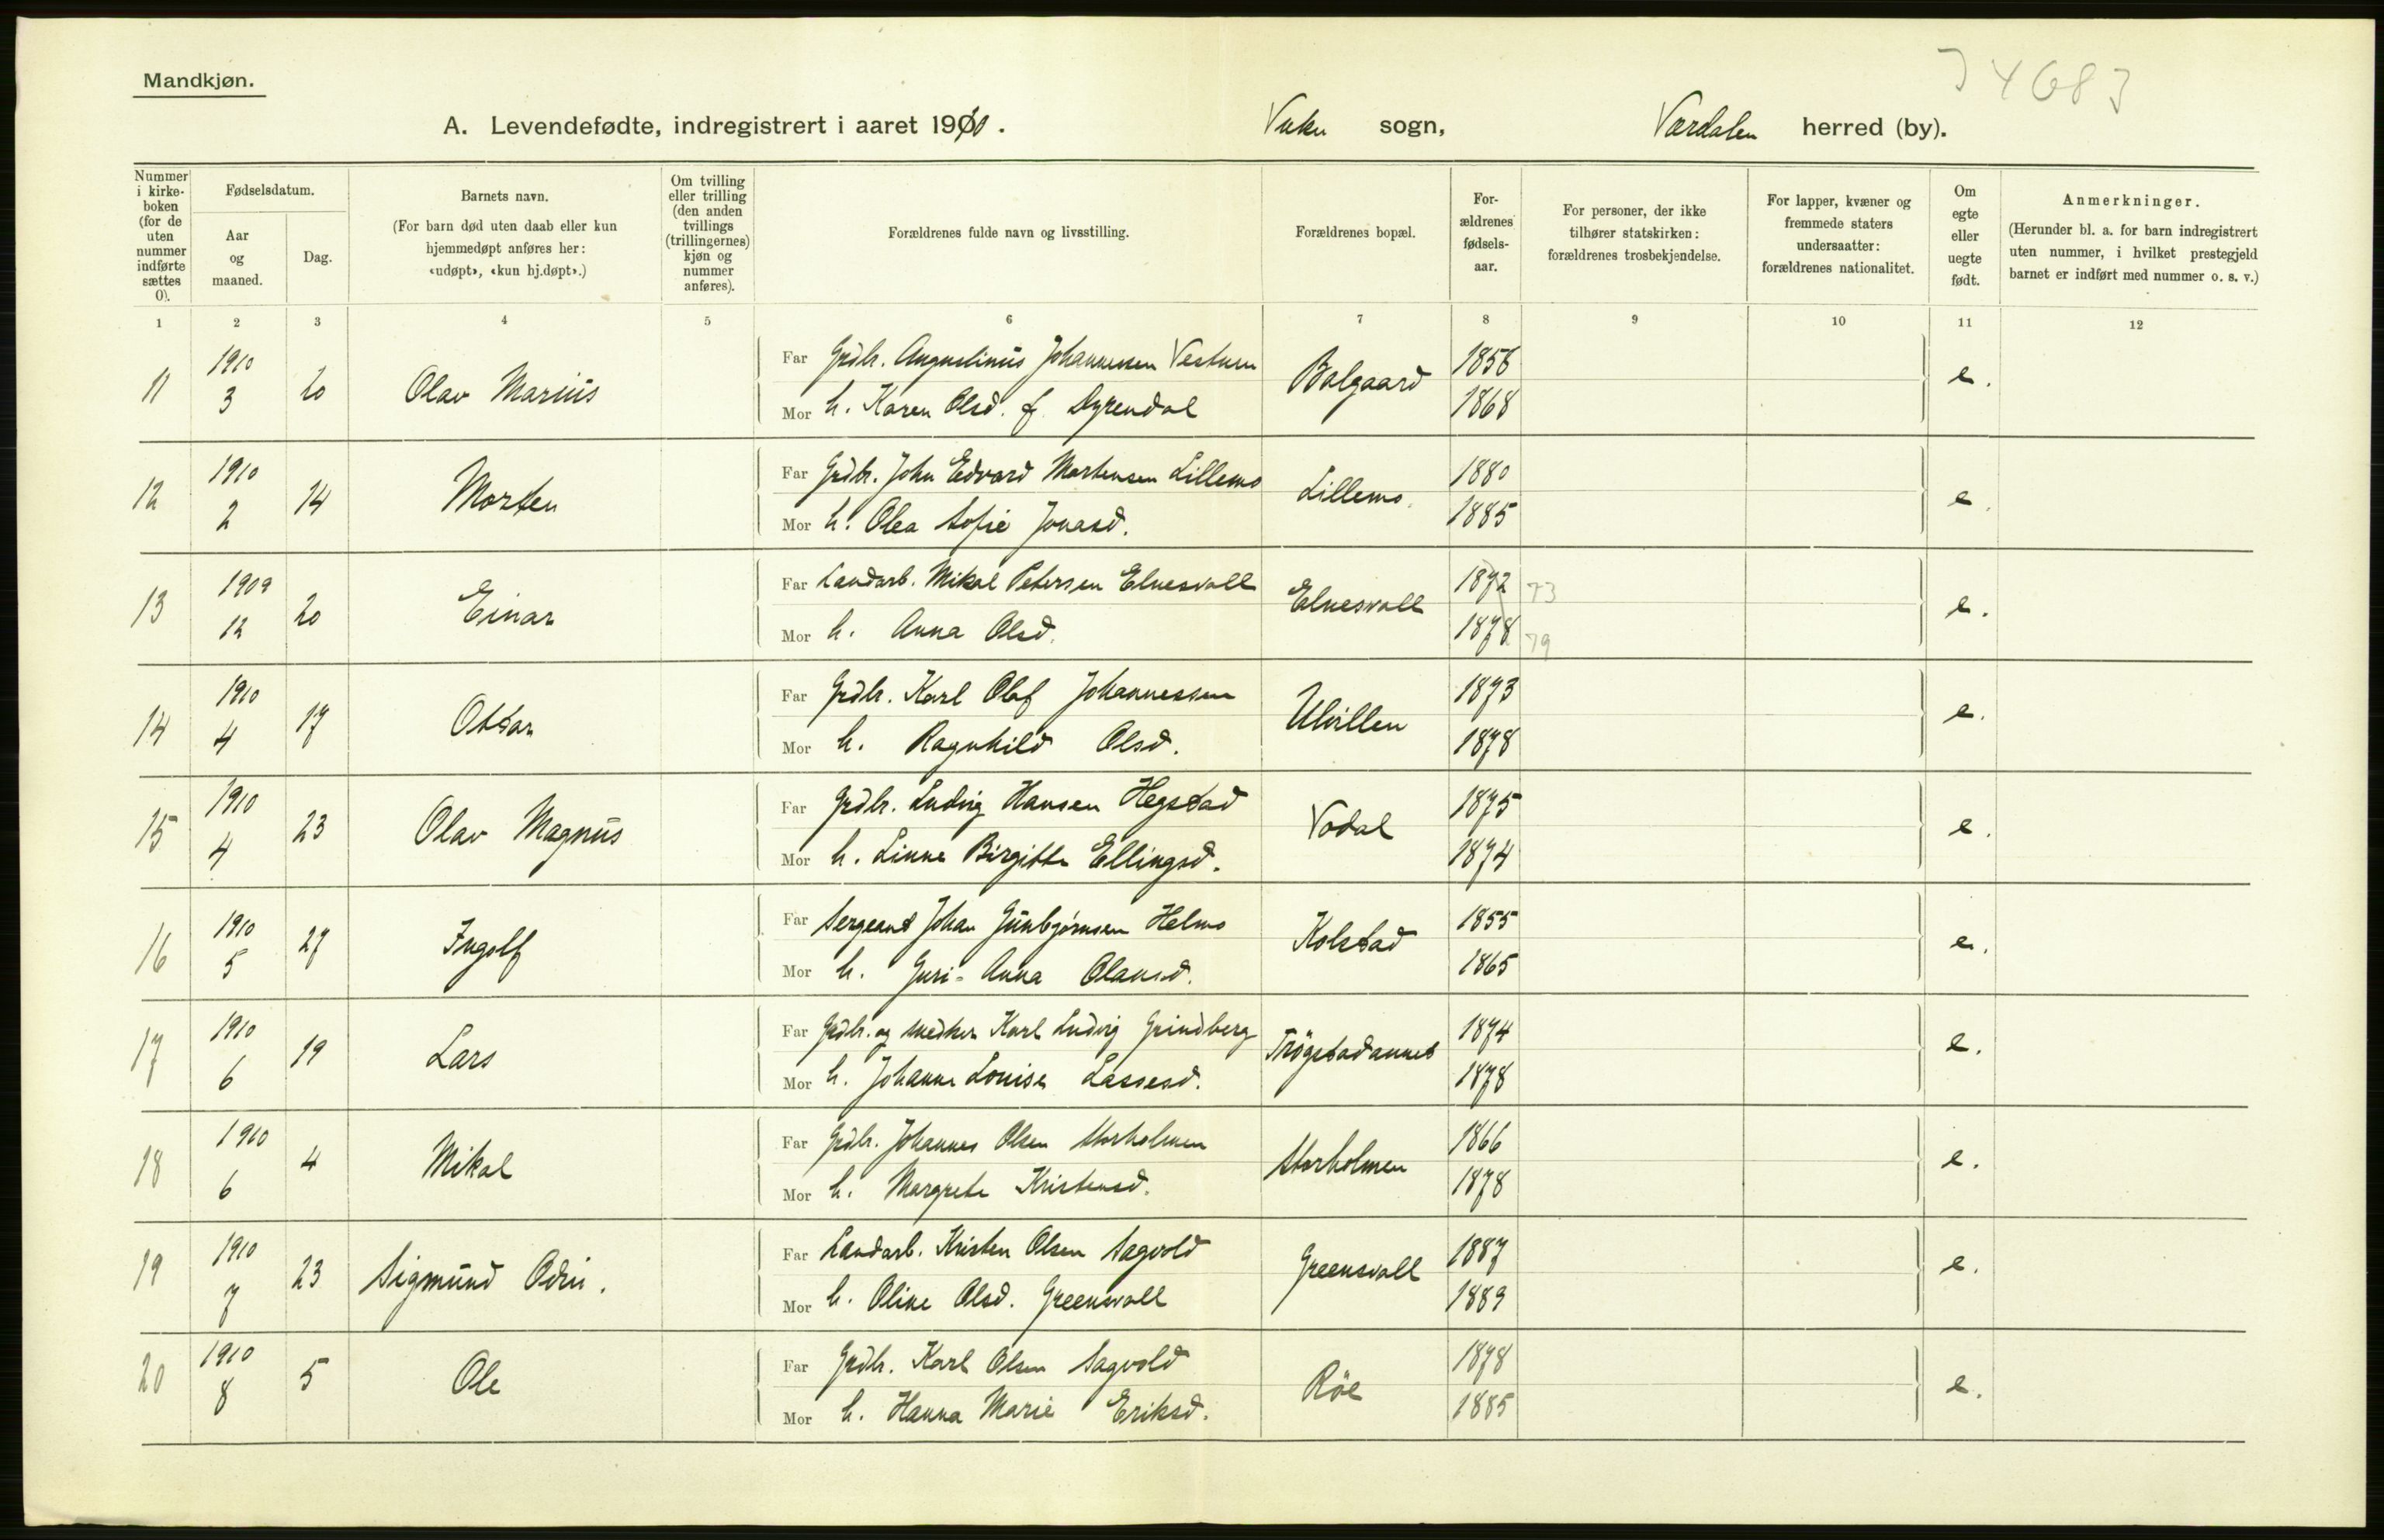 Mandkjøn.
A. Levendefødte, indregistrert i aaret 1910. Vuku sogn, Værdalen herred (by).
Nummer i kirkeboken (for de uten nummer indførte sættes 0).
Fødselsdatum.
Aar og maaned.
Dag.
Barnets navn.
(For barn død uten daab eller kun hjemmedøpt anføres her: «udøpt», «kun hj.døpt».)
Om tvilling eller trilling (den anden tvillings (trillingernes) kjøn og nummer anføres).
Forældrenes fulde navn og livsstilling.
Forældrenes bopæl.
Forældrenes fødselsaar.
For personer, der ikke tilhører statskirken: forældrenes trosbekjendelse.
For lapper, kvæner og fremmede staters undersaatter: forældrenes nationalitet.
Om egte eller uegte født.
Anmerkninger.
(Herunder bl. a. for barn indregistrert uten nummer, i hvilket prestegjeld barnet er indført med nummer o. s. v.)
1 2 3 4 5 6 7 8 9 10 11 12
11 1910 3 20 Olav Marius Far Grdbr. Augustinus Johannesen Vestum Balgaard 1856 e.
Mor h. Karen Olsd. f. Dyrendal 1868
12 1910 2 14 Morten Far Grdbr. John Edvard Martensen Lillemo Lillemo. 1880 e.
Mor h. Olea Sofie Jonasd. 1885
13 1909 12 20 Einar Far Landarb. Mikal Petersen Elnesvald Elnesvald 1872 73 e.
Mor h. Anna Olsd. 1878 79
14 1910 4 17 Ottar Far Grdbr. Karl Olaf Johannessen Ulvillen 1873 e.
Mor h. Ragnhild Olsd. 1878
15 1910 4 23 Olav Magnus Far Grdbr. Ludvig Hansen Hegstad Vodal 1875 e.
Mor h. Linna Birgitte Ellingsd. 1874
16 1910 5 27 Ingolf Far Sergeant Johan Gunbjørnsen Helmo Kolstad 1855 e.
Mor h. Guri-Anna Olausd. 1865
17 1910 6 19 Lars Far Grdbr. og snedker Karl Ludvig Grindberg Trögstadannet 1874 e.
Mor h. Johanna Louise Lassesd. 1878
18 1910 6 4 Mikal Far Grdbr. Johannes Olsen Storholmen Storholmen 1866 e.
Mor h. Margrete Kristensd. 1878
19 1910 7 23 Sigmund Odin. Far Landarb. Kristen Olsen Sagvold Greensvald 1887 e.
Mor h. Oline Olsd. Greensvald 1889
20 1910 8 5 Ole Far Grdbr. Karl Olsen Sagvold Röe 1878 e.
Mor h. Hanna Marie Eriksd. 1885